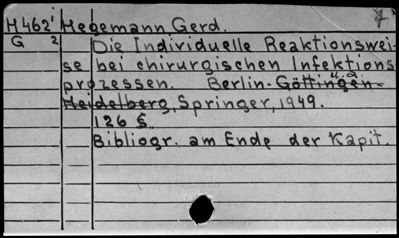 H 462¹ Hegemann Gerd. 7
G 2 Die Individuelle Reaktionswei-
se bei chirurgischen Infektions
prozessen. Berlin-Göttingen- u.a.
Heidelberg, Springer, 1949.
126 S.
Bibliogr. am Ende der Kapit.